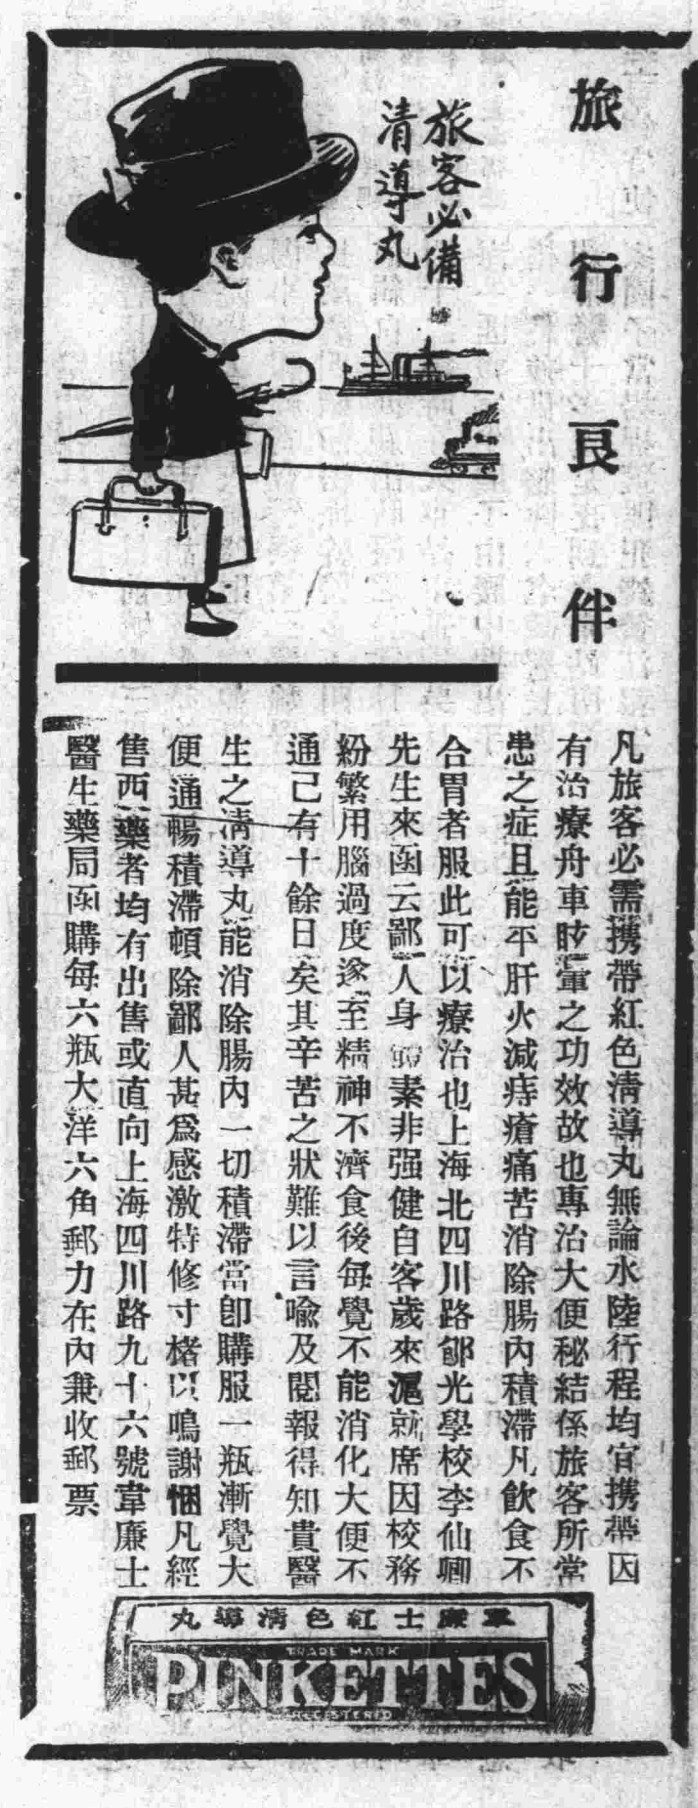 旅行良伴
旅客必備
清導丸
凡旅客必需携帶紅色淸導丸無論水陸行程均宜携帶因
有治療舟車眩暈之功效故也專治大便秘結係旅客所常
患之症且能平肝火減痔瘡痛苦消除腸內積滯凡飲食不
合胃者服此可以療治也上海北四川路郇光學校李仙卿
先生來函云鄙人身體素非强健自客歲來滬就席因校務
紛繁用腦過度遂至精神不濟食後每覺不能消化大便不
通己有十餘日矣其辛苦之狀難以言喩及閱報得知貴醫
生之淸導丸能消除腸內一切積滯當卽購服一瓶漸覺大
便通暢積滯頓除鄙人甚爲感激特修寸楮以鳴謝悃凡經
售西藥者均有出售或直向上海四川路九十六號韋廉士
醫生藥局函購每六瓶大洋六角郵力在內兼收郵票
丸導淸色紅士廉韋
TRADE MARK
PINKETTES
REGISTERED